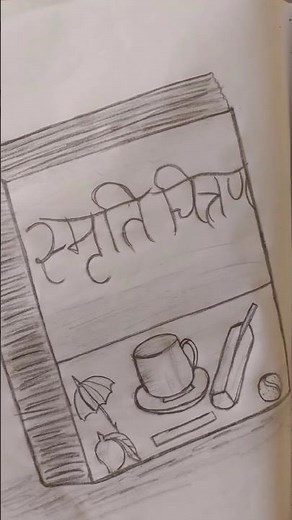 स्मृति चित्रण